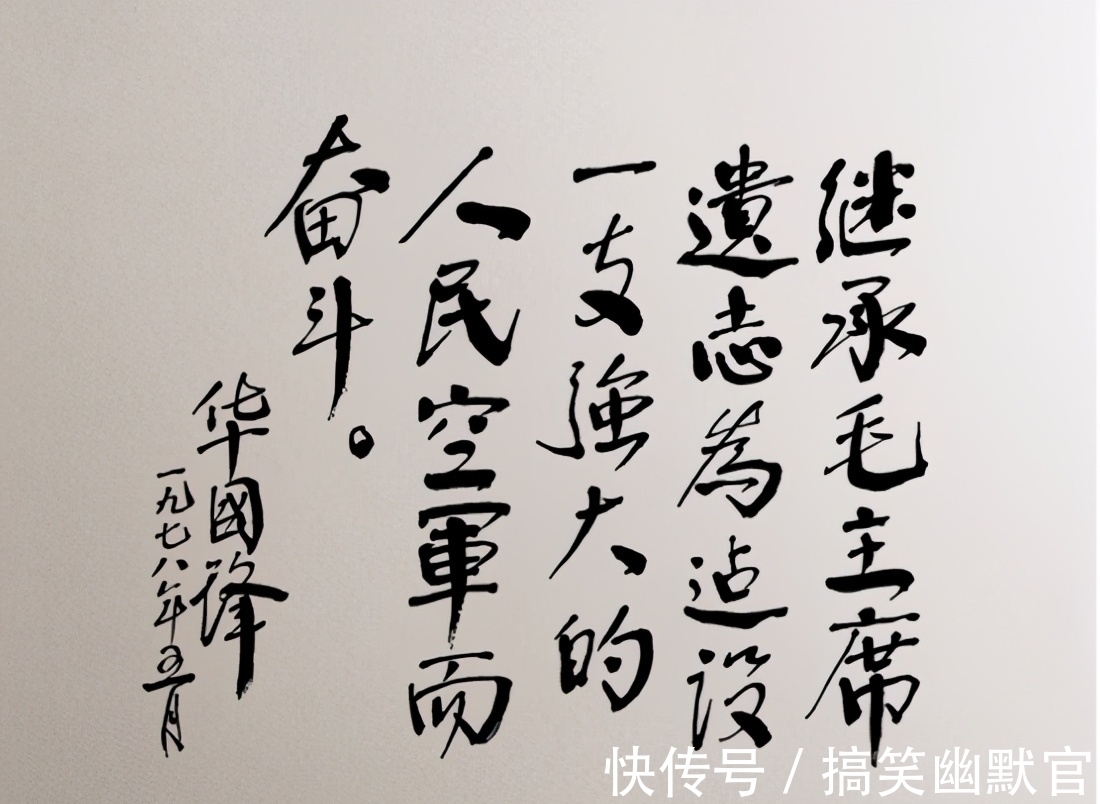 继承毛主席
遺志為迠设
一支強大的
人民空軍而
奋斗。
华國锋
一九七八年五月
快传号 / 搞笑幽默官